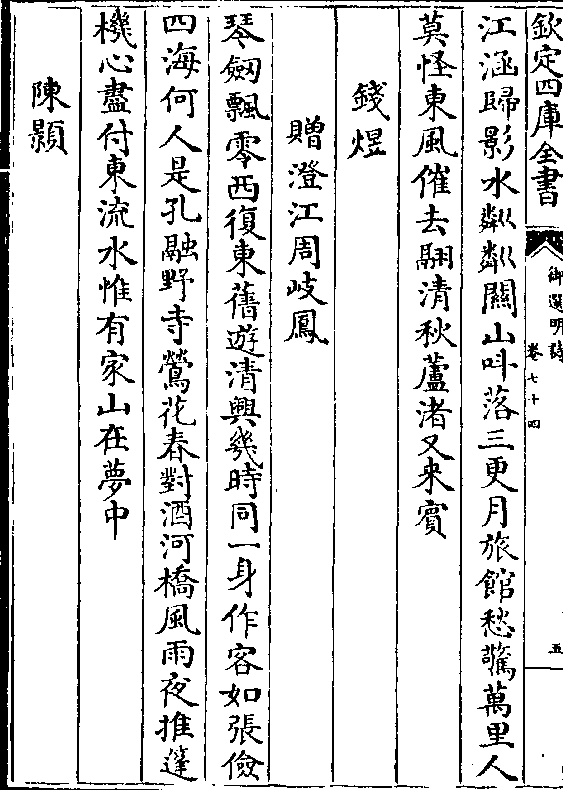 欽定四庫全書
御選明詩
卷七十四
五
江涵歸影水粼粼關山呌落三更月旅館愁驚萬里人
莫怪東風催去翮清秋蘆渚又来賓
錢煜
贈澄江周岐鳳
琴劒飄零西復東舊遊清興幾時同一身作客如張儉
四海何人是孔融野寺鶯花春對酒河橋風雨夜推篷
機心盡付東流水惟有家山在夢中
陳顥